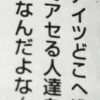 ケイツどこへ
アセる人達
なんだよな